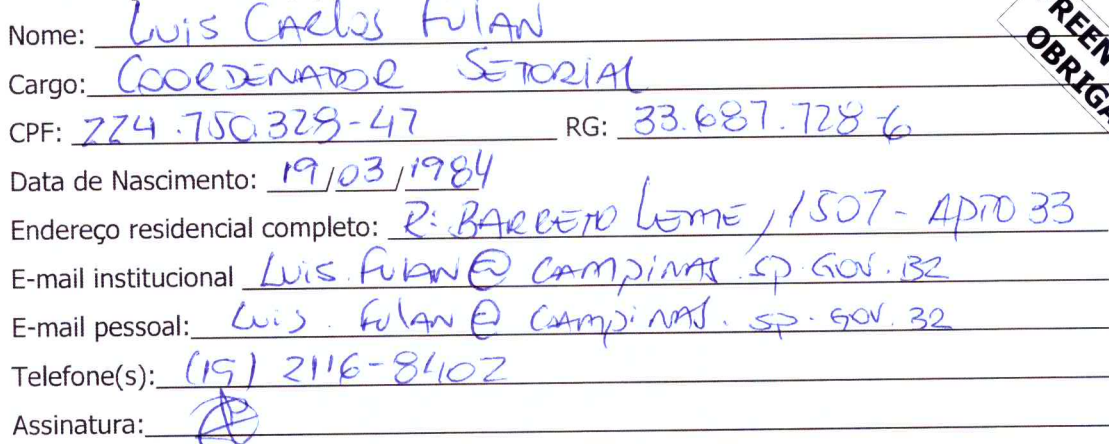 Nome: Luis Carlos Fulan
Cargo: COORDENADOR SETORIAL
CPF: 224.750.328-47 RG: 33.687.728-6
Data de Nascimento: 19/03/1984
Endereço residencial completo: R: BARRETO LEME, 1507 - APTO 33
E-mail institucional Luis.FULAN@CAMPINAS.SP.GOV.BR
E-mail pessoal: Luis.FULAN@CAMPINAS.SP.GOV.BR
Telefone(s): (19) 2116-8402
Assinatura:
REEN
OBRIGA